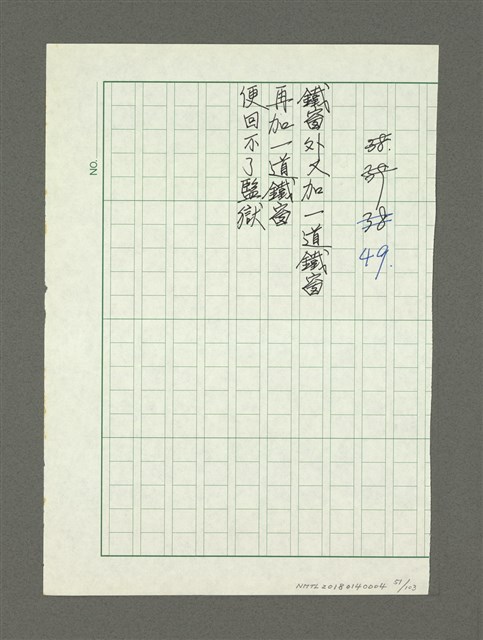 38.
39
38
49.
鐵窗外又加一道鐵窗
再加一道鐵窗
便回不了監獄
NO.
NMTL20180140004 51/103